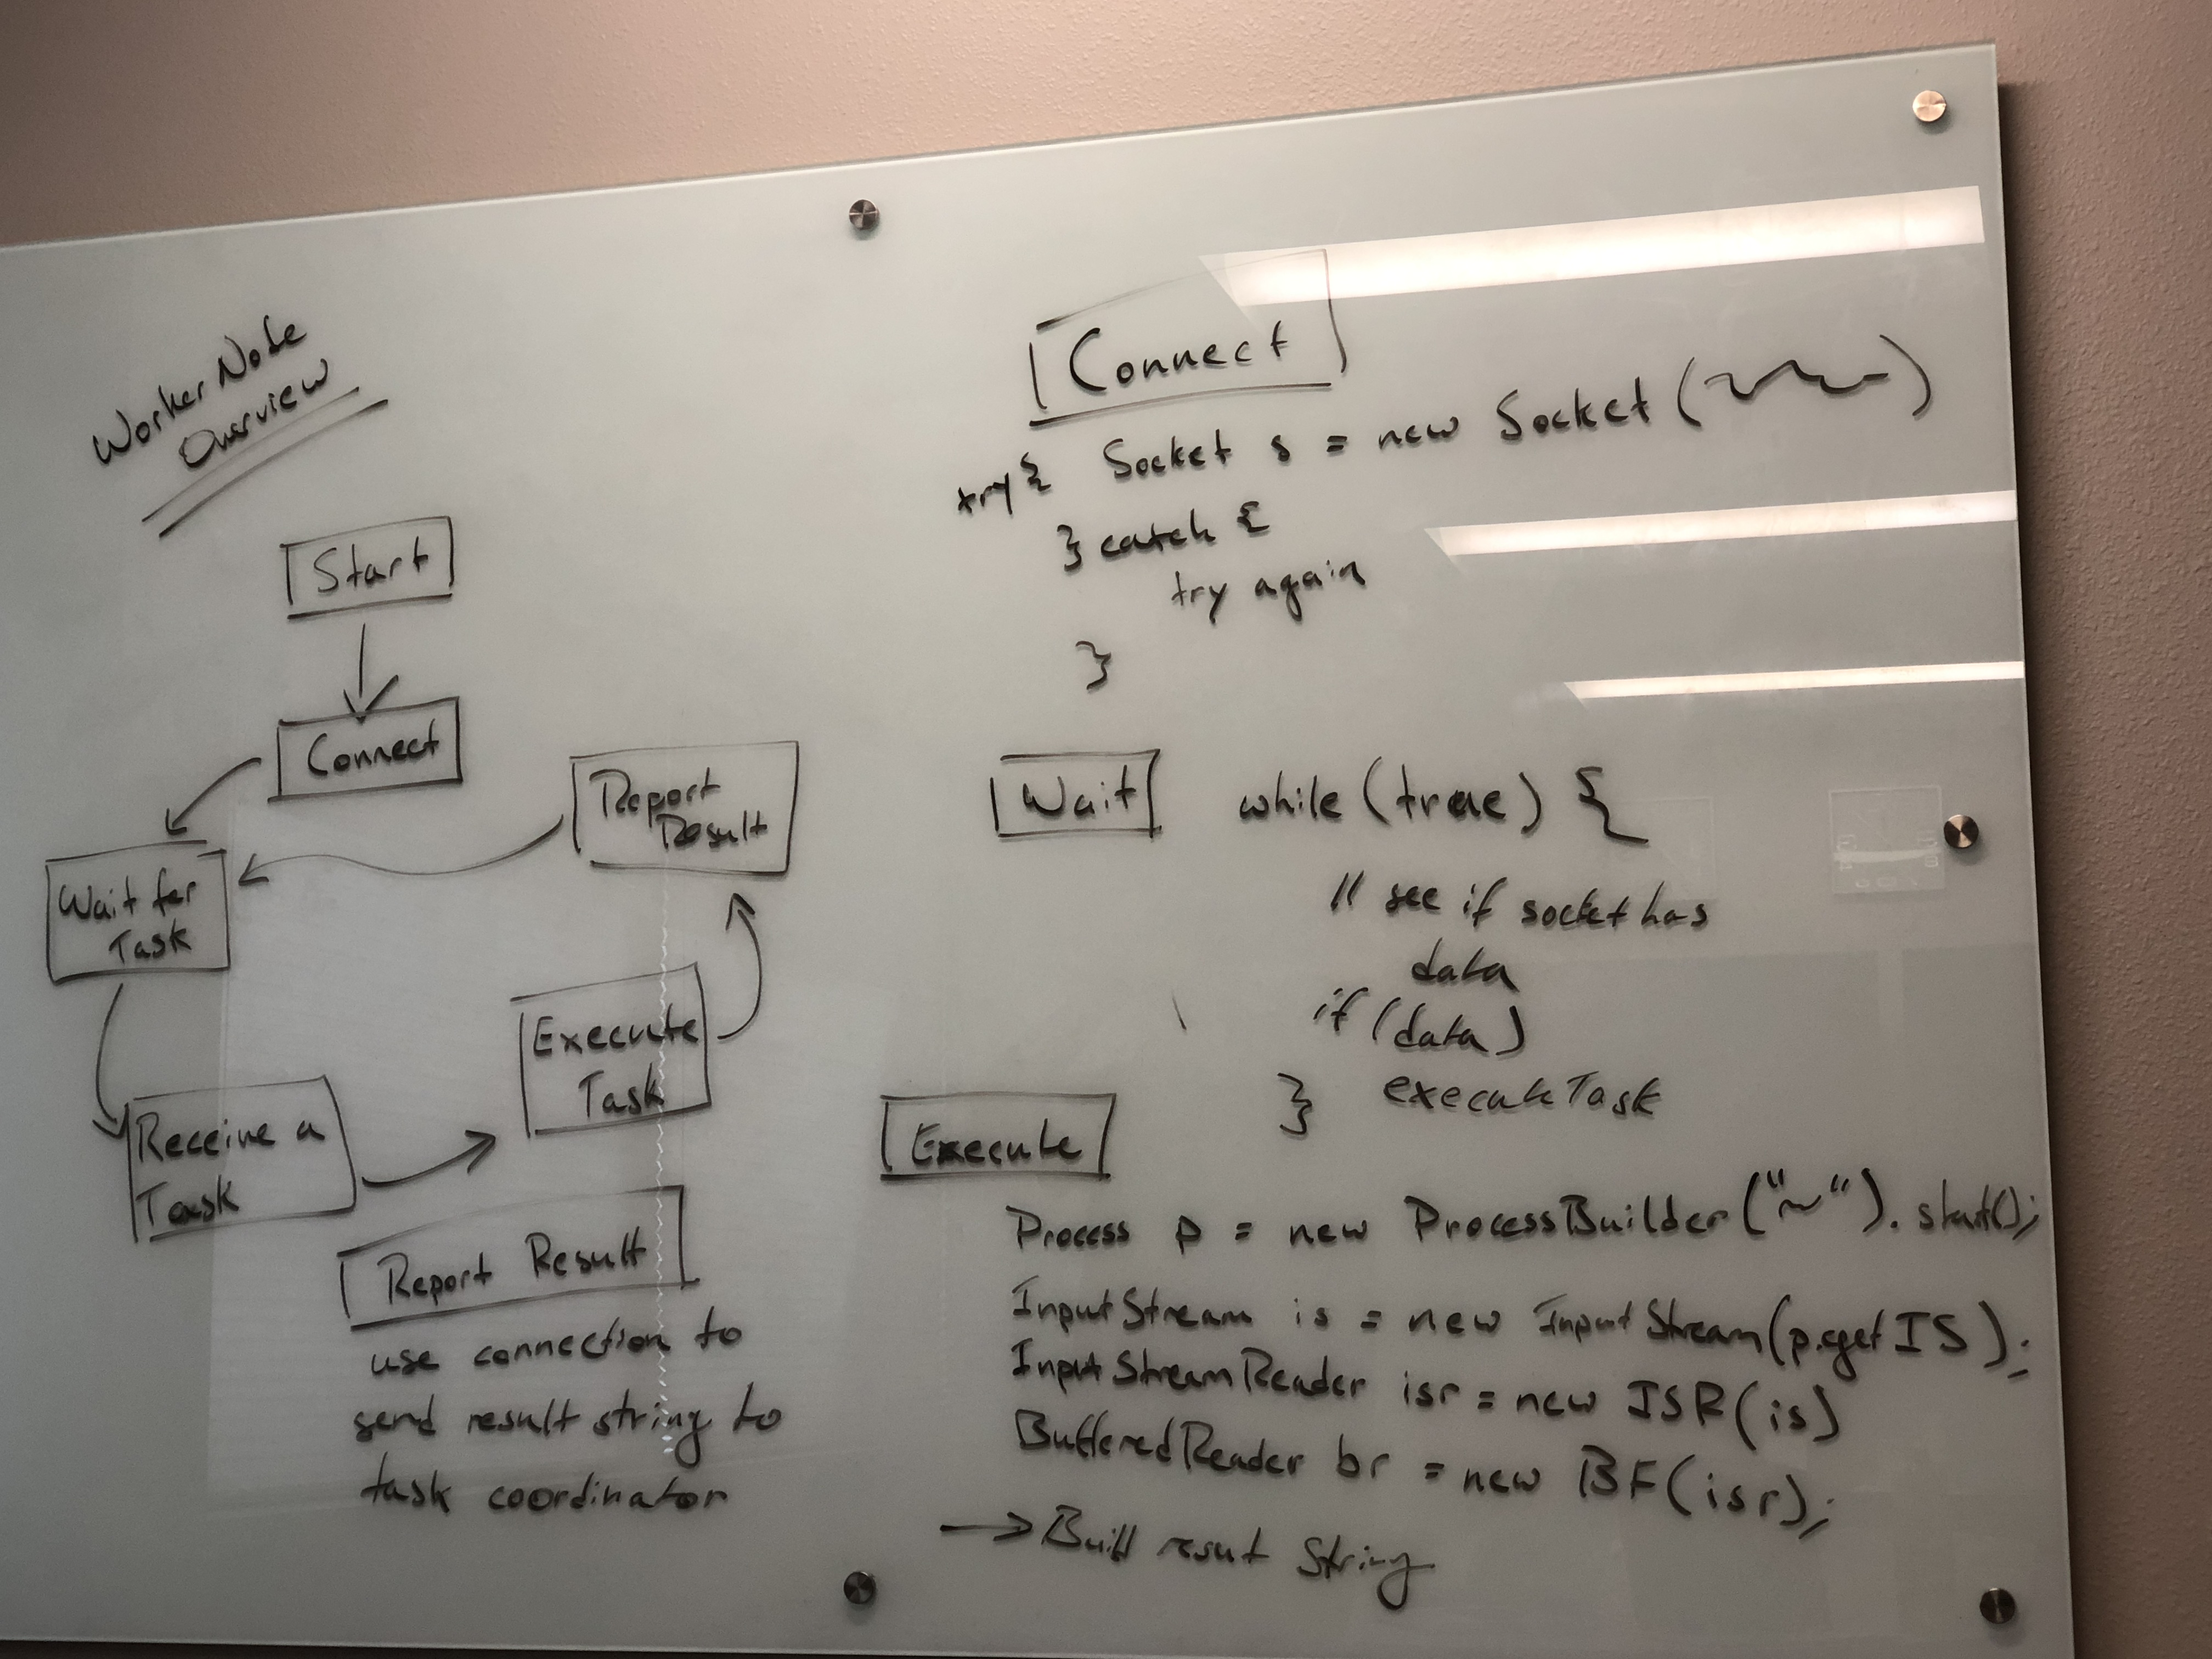 Worker Node
Overview
Start
Connect
Wait for
Task
Receive a
Task
Execute
Task
Report
Result
Report Result
use connection to
send result string to
task coordinator
Connect
try { Socket s = new Socket (
} catch {
try again
}
Wait
while (true) {
// see if socket has
data
if (data)
} executeTask
Execute
Process p = new ProcessBuilder ("~"). start();
InputStream is = new InputStream (p.getIS);
InputStreamReader isr = new ISR (is)
BufferedReader br = new BF (isr);
→ Build result String